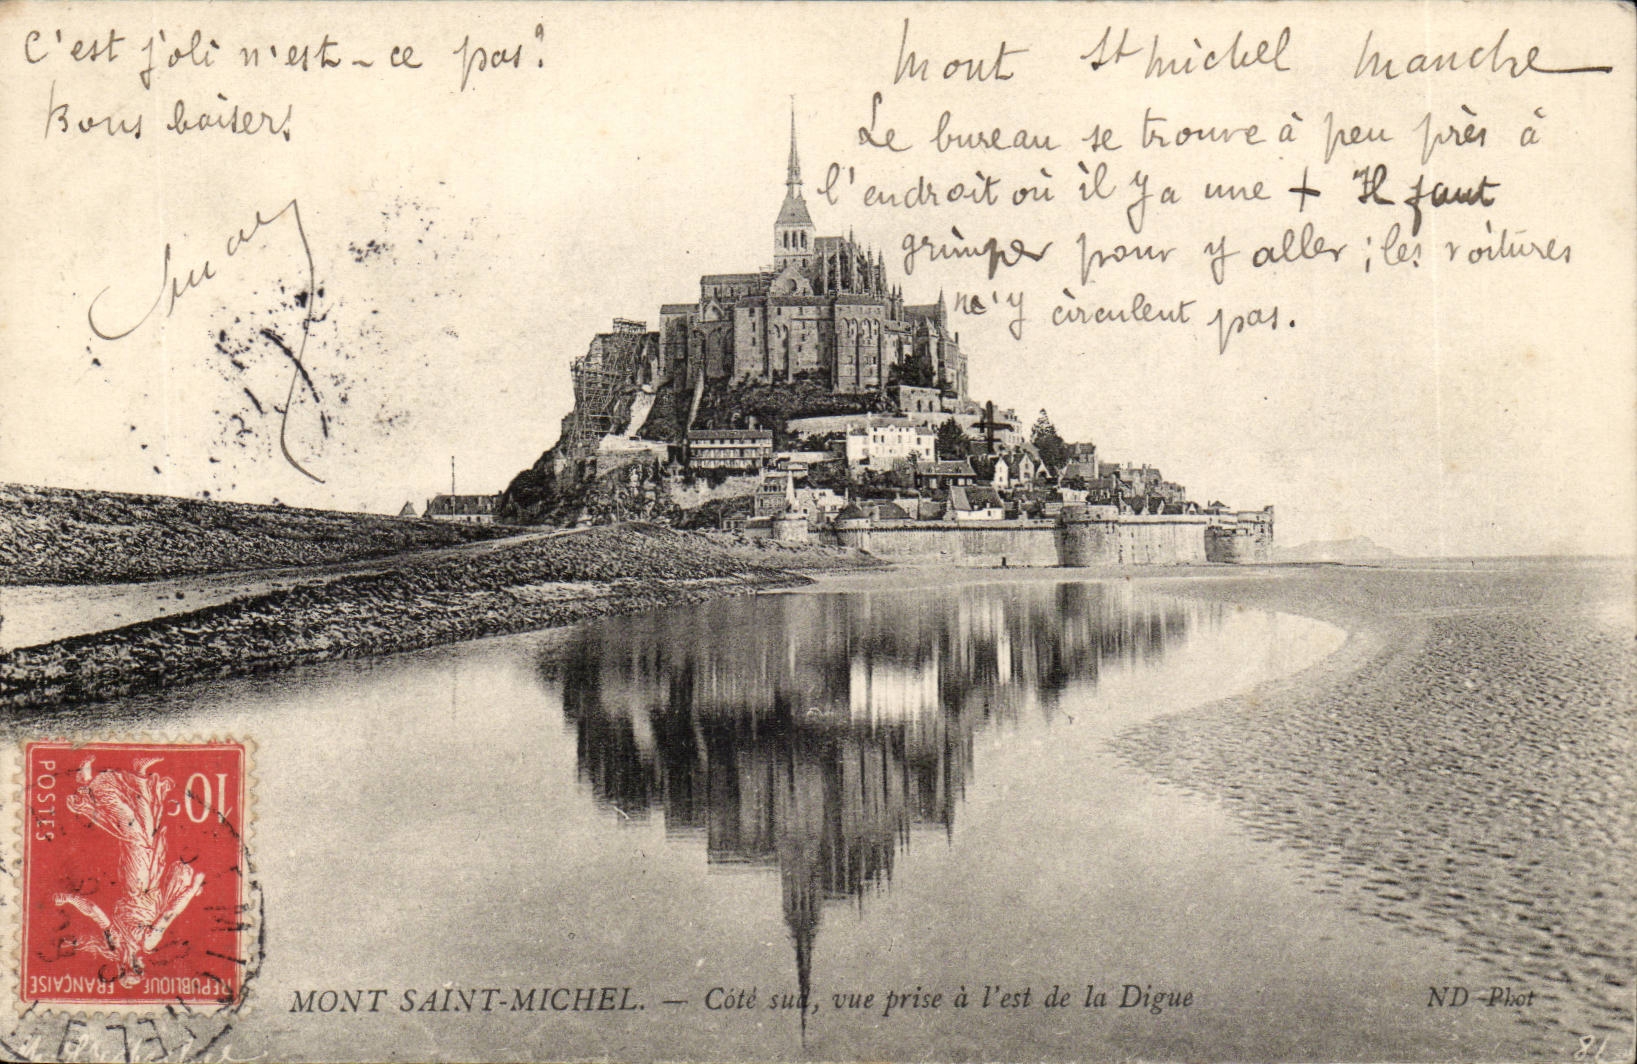 C'est joli n'est-ce pas?
Bons baisers
Mont St Michel Manche
Le bureau se trouve à peu près à
l'endroit où il y a une + Il faut
grimper pour y aller ; les voitures
n'y circulent pas.
10c
POSTES
REPUBLIQUE FRANÇAISE
MONT SAINT-MICHEL. — Côté sud, vue prise à l'est de la Digue
ND Phot
81